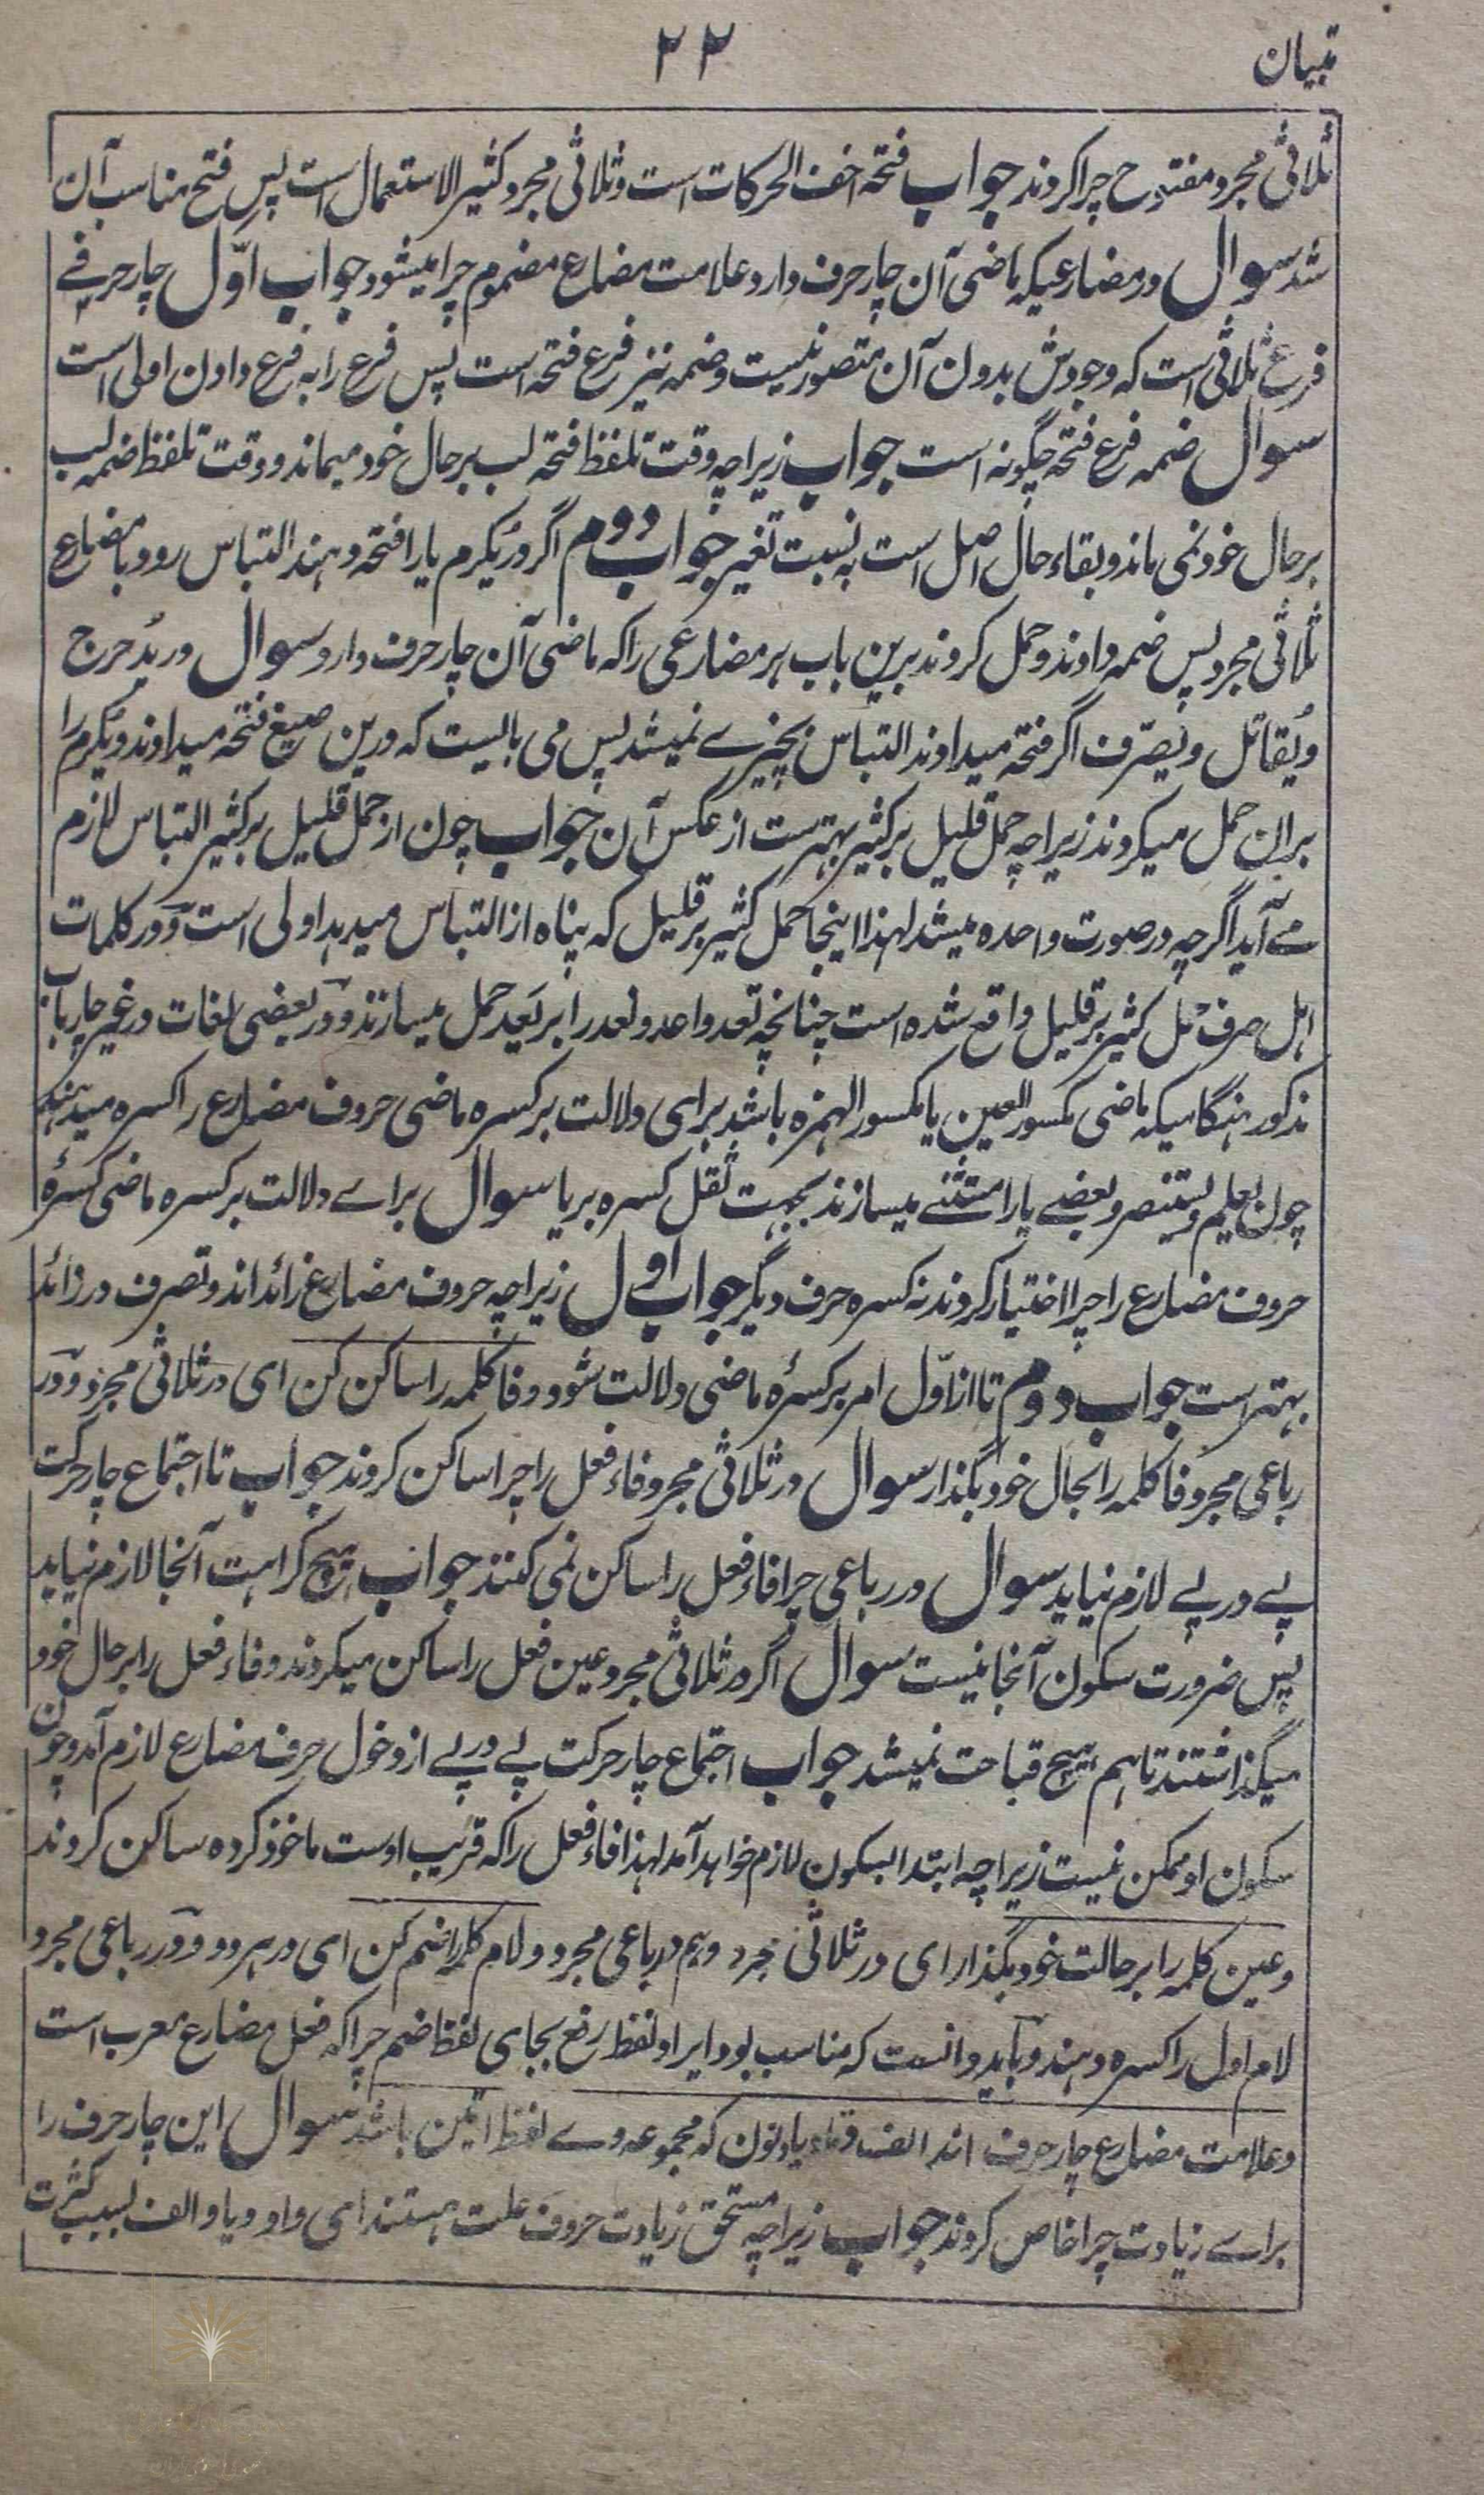 تبیان
۲۲
ثلاثی مجرد مفتوح چرا کردند جواب فتحه اخف الحرکات است و ثلاثی مجرد کثیر الاستعمال است پس فتح مناسب آن
شد سوال در مضارعیکه ماضی آن چار حرف دارد علامت مضارع مضموم چرا میشود جواب اوّل چار حرفے
فرع ثلاثی است که وجودش بدون آن متصور نیست و ضمه نیز فرع فتحه است پس فرع را به فرع دادن اولی است
سوال ضمه فرع فتحه چگونه است جواب زیراچه وقت تلفظ فتحه لب بر حال خود میماند و وقت تلفظ ضمه لب
بر حال خود نمی ماند و بقاء حال اصل است به نسبت تغیر جواب دوم اگر در یُکرم یا را فتحه دهند التباس رود با مضارع
ثلاثی مجرد پس ضمه دادند و حمل کردند برین باب هر مضارعی را که ماضی آن چار حرف دارد سوال در یُدحرج
و یُقاتل و یُصرّف اگر فتحه میدادند التباس بچیزے نمیشد پس می بایست که درین صیغ فتحه میدادند و یُکرم را
بران حمل میکردند زیراچه حمل قلیل بر کثیر بهترست از عکس آن جواب چون از حمل قلیل بر کثیر التباس لازم
مے آید اگرچه در صورت واحده میشد لهذا اینجا حمل کثیر بر قلیل که پناه از التباس میدهد اولی است و در کلمات
اهل صرف حمل کثیر بر قلیل واقع شده است چنانچه تعد و اعد و نعد را بر یَعد حمل میسازند و در بعضی لغات در غیر چار باب
مذکور هنگامیکه ماضی مکسور العین یا مکسور الهمزه باشد برای دلالت بر کسره ماضی حروف مضارع را کسره میدهند
چون یعلم و یستنصر و بعضے یا را مستثنے میسازند بجهت ثقل کسره بر یا سوال براے دلالت بر کسره ماضی کسرۀ
حروف مضارع را چرا اختیار کردند نه کسره حرف دیگر جواب اول زیراچه حروف مضارع زائد اند و تصرف در زائد
بهتر است جواب دوم تا از اوّل امر بر کسرۀ ماضی دلالت شود و فا کلمه را ساکن کن ای در ثلاثی مجرد و در
رباعی مجرد فا کلمه را بحال خود بگذار سوال در ثلاثی مجرد فاء فعل را چرا ساکن کردند جواب تا اجتماع چار حرکت
پے در پے لازم نیاید سوال در رباعی چرا فاء فعل را ساکن نمی کنند جواب هیچ کراهت آنجا لازم نیاید
پس ضرورت سکون آنجا نیست سوال اگر در ثلاثی مجرد عین فعل را ساکن میکردند و فاء فعل را بر حال خود
میگذاشتند تا هم هیچ قباحت نمیشد جواب اجتماع چار حرکت پے در پے از دخول حرف مضارع لازم آمد و چون
سکون او ممکن نیست زیراچه ابتدا بسکون لازم خواهد آمد لهذا فاء فعل را که قریب اوست ماخوذ کرده ساکن کردند
و عین کلمه را بر حالت خود بگذار ای در ثلاثی مجرد و هم در رباعی مجرد و لام کلمه را ضم کن ای در هر دو و در رباعی مجرد
لام اول را کسره دهند و باید دانست که مناسب بود ایراد لفظ رفع بجای لفظ ضم چراکه فعل مضارع معرب است
و علامت مضارع چار حرف اند الف و تاء و یا و نون که مجموعه وے لفظ اتین باشد سوال این چار حرف را
براے زیادت چرا خاص کردند جواب زیراچه مستحق زیادت حروف علت هستند ای واو و یا و الف بسبب کثرت